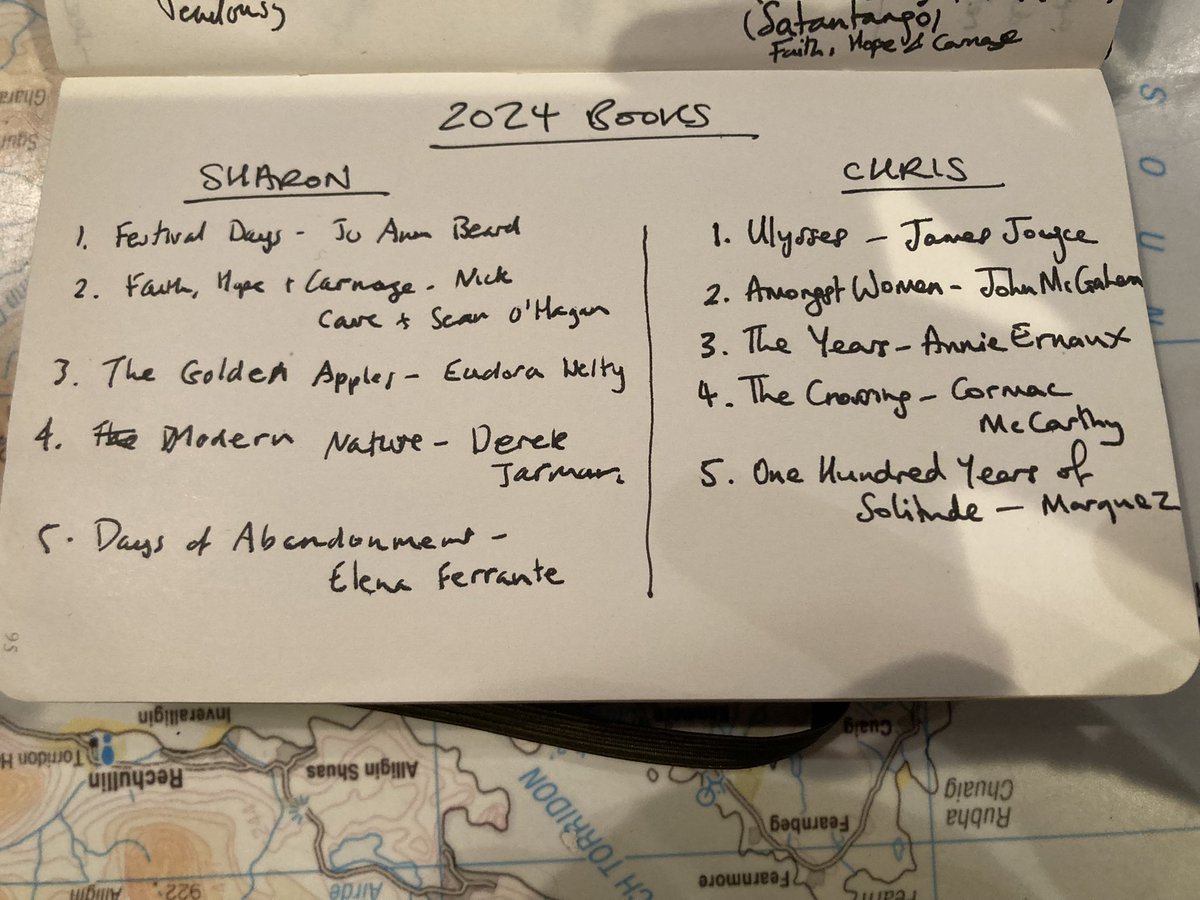 Jealousy
(Satantango)
Faith, Hope & Carnage
2024 BOOKS
SHARON
1. Festival Days - Jo Ann Beard
2. Faith, Hope + Carnage - Nick
Cave + Sean O'Hagan
3. The Golden Apples - Eudora Welty
4. The Modern Nature - Derek
Jarman
5. Days of Abandonment -
Elena Ferrante
CHRIS
1. Ulysses - James Joyce
2. Amongst Women - John McGahern
3. The Years - Annie Ernaux
4. The Crossing - Cormac
McCarthy
5. One Hundred Years of
Solitude - Marquez
95
SOUN
Inveralligin
Torridon H
Rechullin
Alligin Shuas
CH TORRIDON
Cuaig
Rubha
Chuaig
Fearnbeg
Fearnmore
Fearn
Airde
Alligin
922
244
Gharah